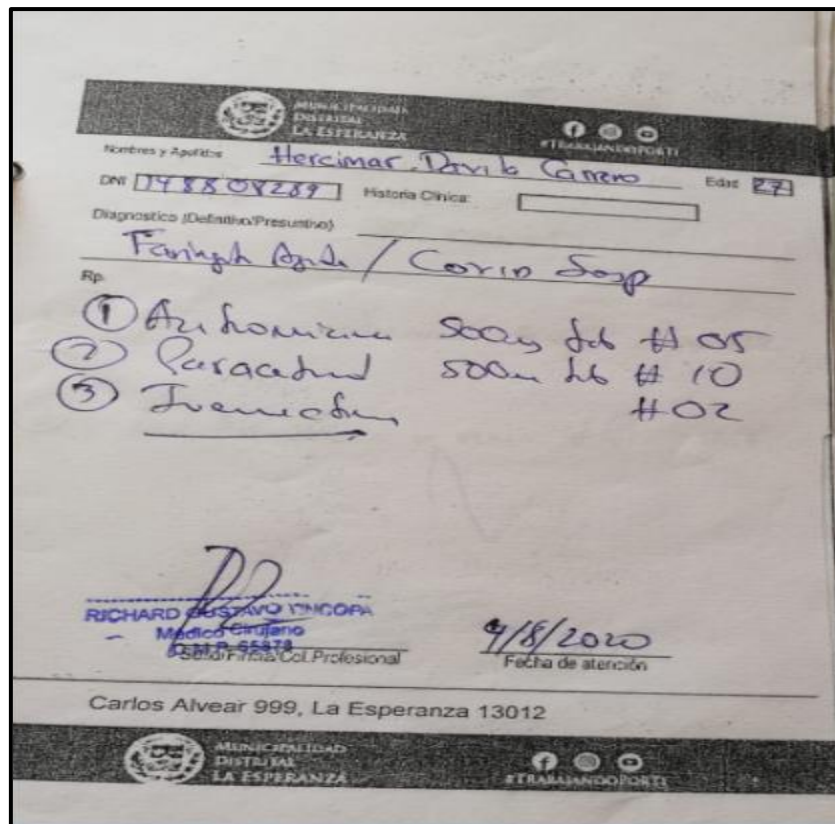 MUNICIPALIDAD
DISTRITAL
LA ESPERANZA
#TRABAJANDOPORTI
Nombres y Apellidos Hercimar Davila Carrero Edad 27
DNI Historia Clínica:
Diagnostico (Definitivo/Presuntivo)
Faringit Aguda / Covid Sosp
Rp.
① Azitromicina 500mg tab # 05
② Paracetamol 500m tab # 10
③ Ivermectina #02
RICHARD GUSTAVO
Médico Cirujano
Sello/Firma/Col.Profesional
4/8/2020
Fecha de atención
Carlos Alvear 999, La Esperanza 13012
MUNICIPALIDAD
DISTRITAL
LA ESPERANZA
#TRABAJANDOPORTI